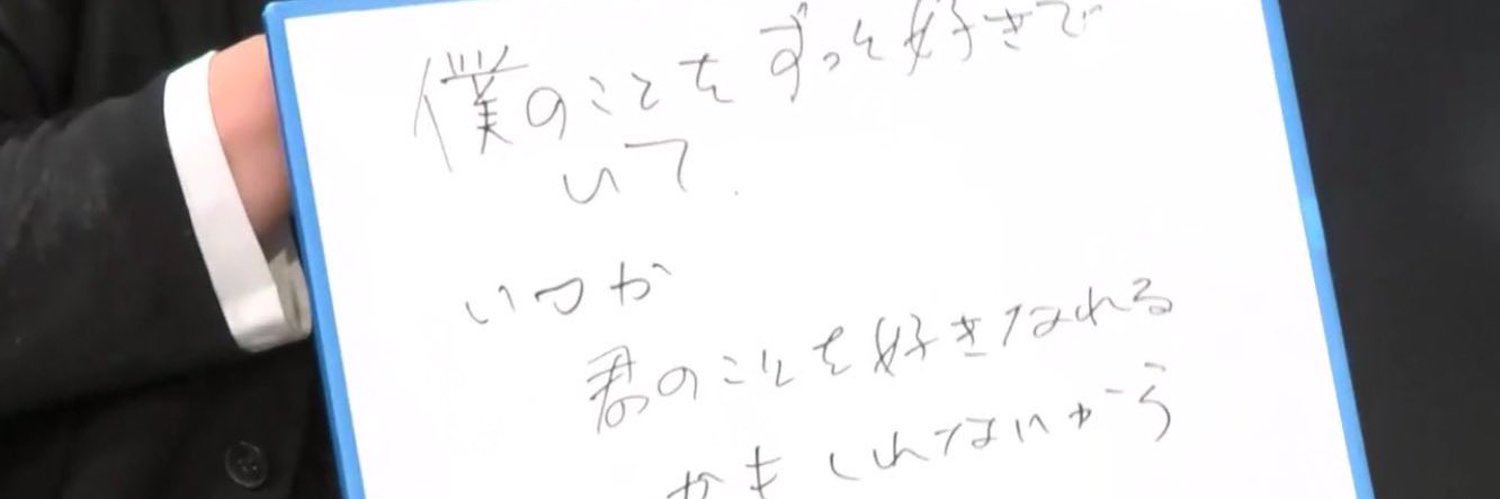 僕のことをずっと好きで
いて.
いつか
君のことを好きなれる
かもしれないから